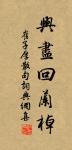 興盡回蘭棹
崔子厚散句詞典網集